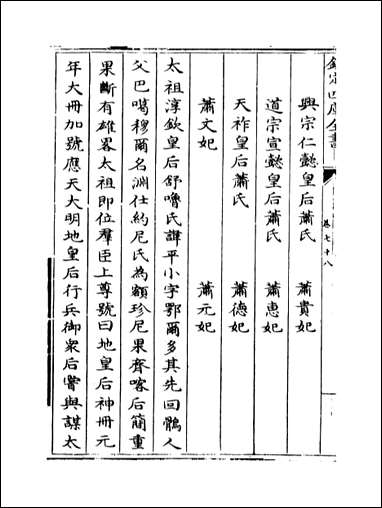 欽定四庫全書
卷七十八
興宗仁懿皇后蕭氏 蕭貴妃
道宗宣懿皇后蕭氏 蕭惠妃
天祚皇后蕭氏 蕭德妃
蕭文妃 蕭元妃
太祖淳欽皇后舒嚕氏諱平小字鄂爾多其先回鶻人
父巴噶穆爾名淵仕約尼氏為額珍尼果齊喀后簡重
果斷有雄畧太祖即位羣臣上尊號曰地皇后神冊元
年大冊加號應天大明地皇后行兵御衆后嘗與謀太